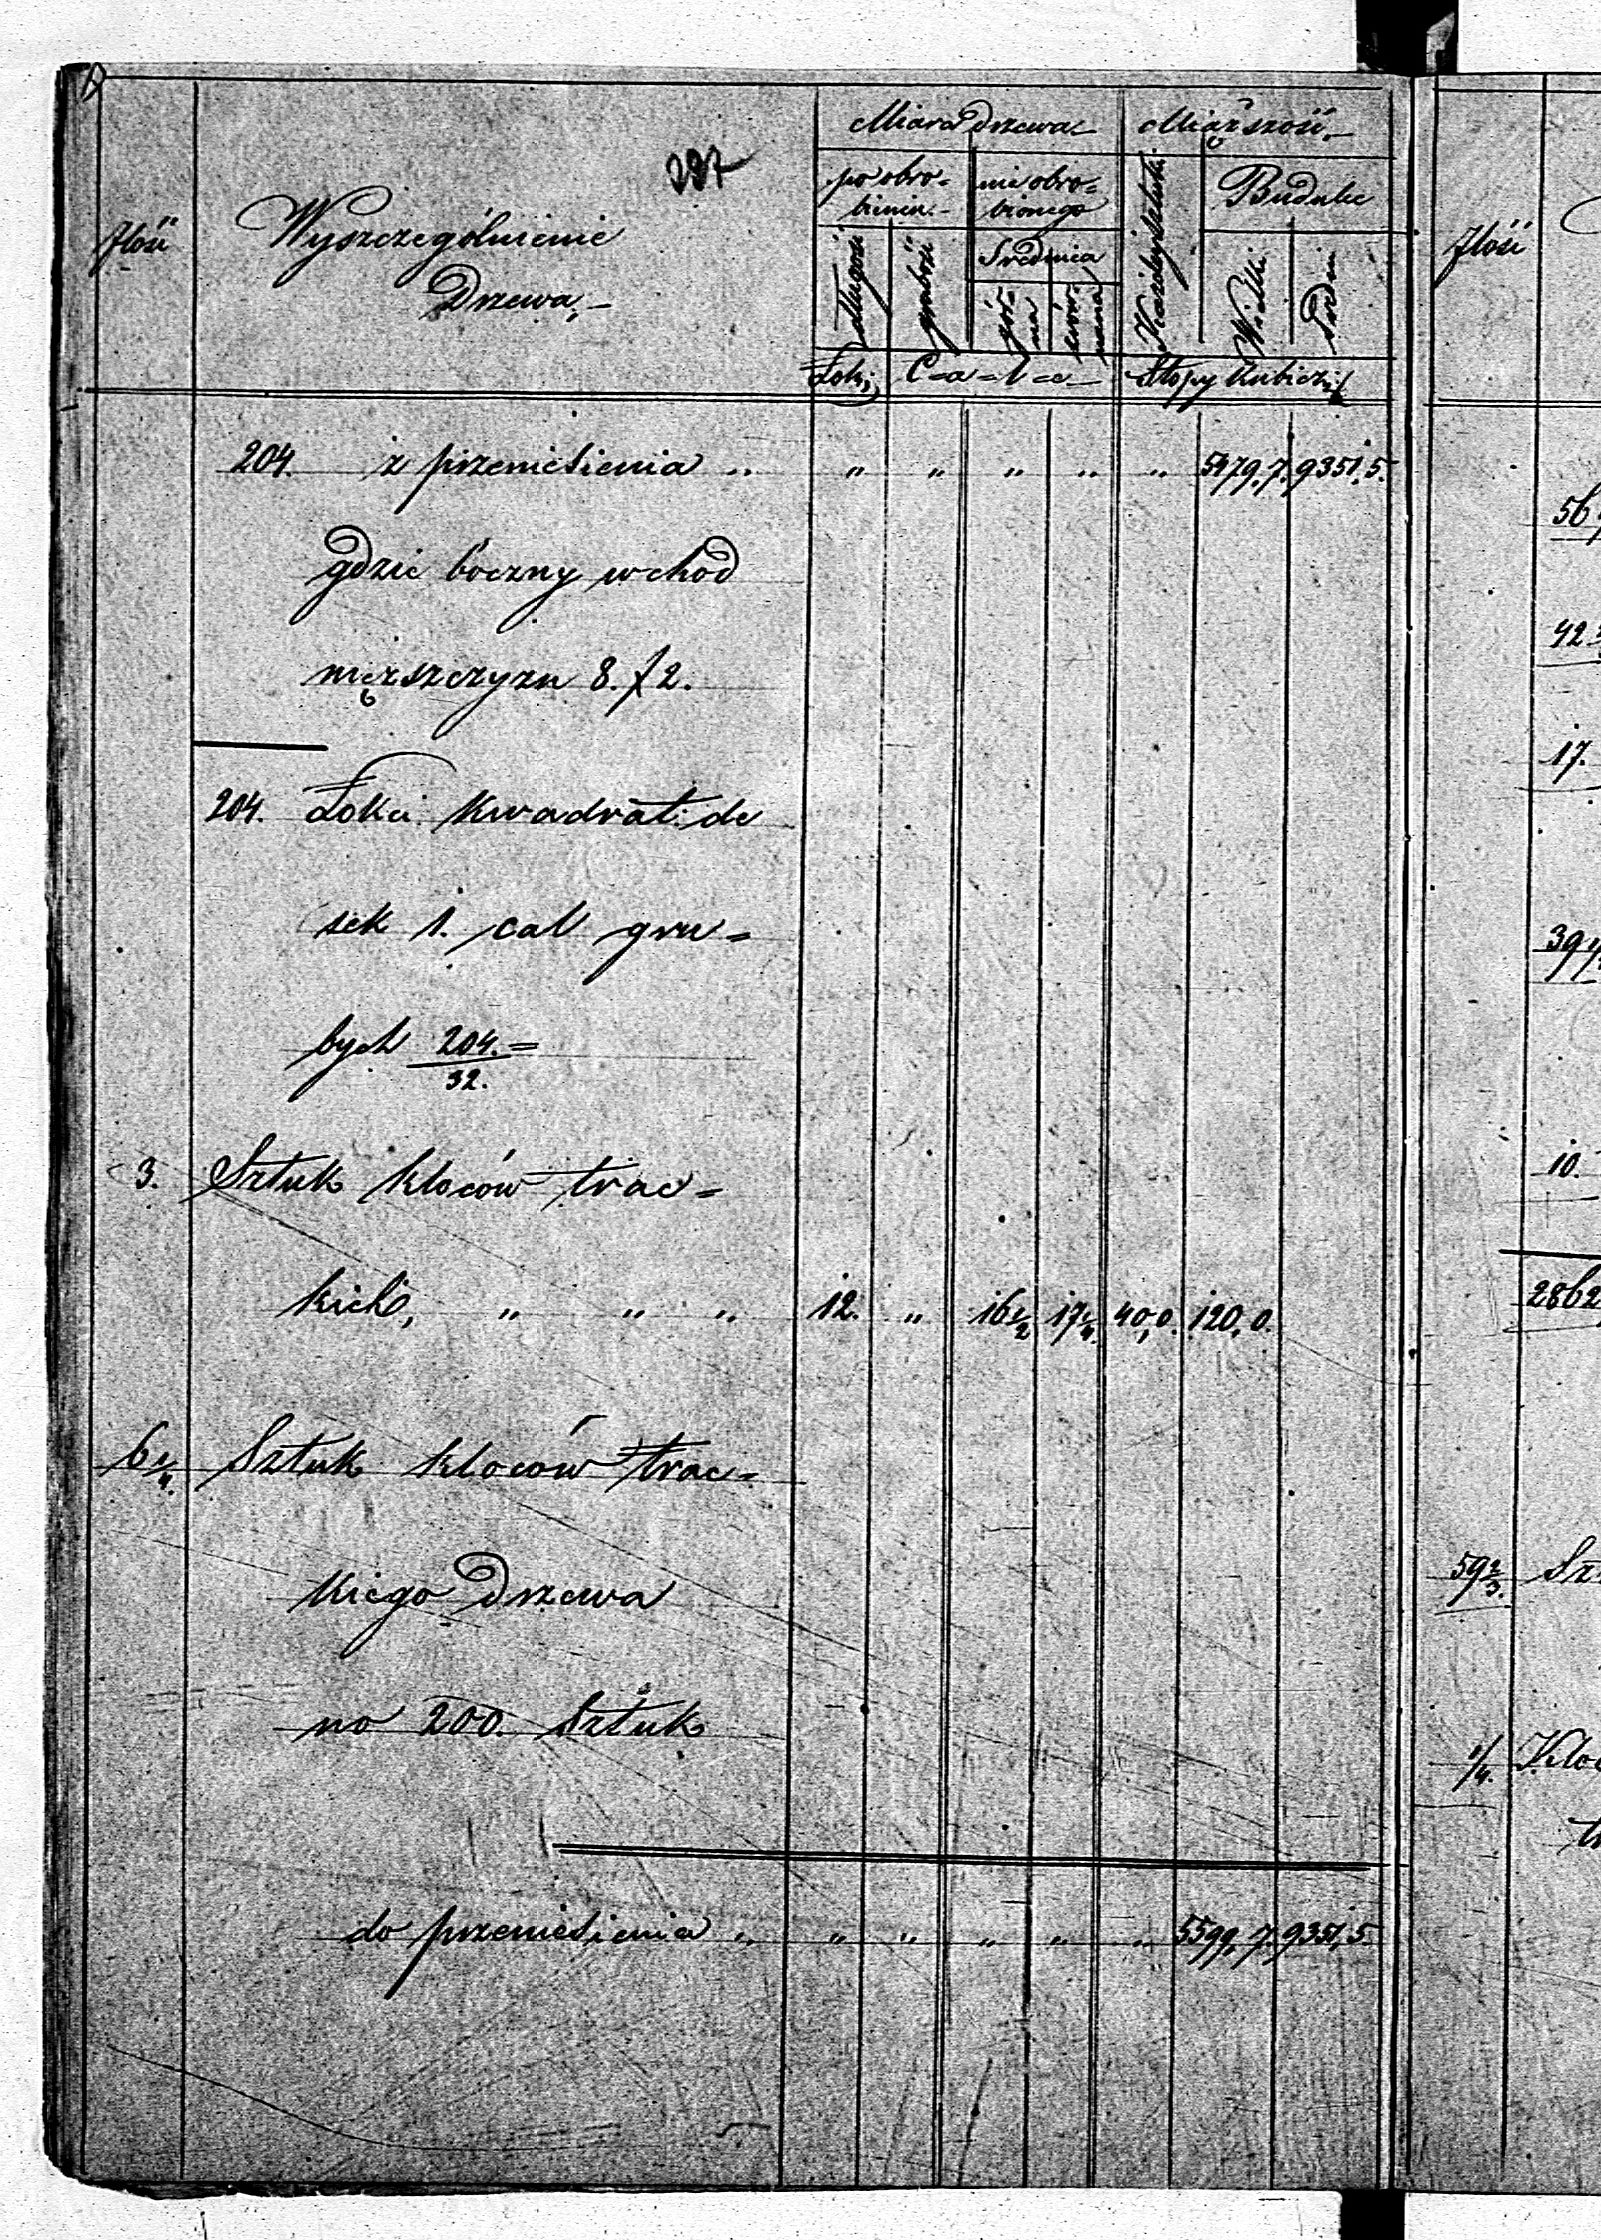 237
Ilość
Wyszczególnienie
Drzewa,
Miara drzewa
po obro=
bieniu
nie obro=
bionego
długość
grubość
Średnica
gór=
na
rów=
nana
Łokci
C=a=l=e
Miąższość
Każdej sztuki
Budulec
Wielki
Średni
Stopy Kubiczne
204. z przeniesienia " " " " " " 5479,7. 9351,5.
gdzie boczny wchód
męższczyzn 8. f 2.
204. Łokci kwadrat: de
sek 1. cal gru=
bych 204.=
32.
3. Sztuk kloców trac=
kich, " " " 12. " 16 1/2 17 1/4. 40,0. 120,0.
6 1/4. Sztuk kloców trac=
kiego Drzewa
no 200. Sztuk
do przeniesienia " " " " " " 5599,7. 9351,5.
Ilość
56
42
17.
10.
2862
59 2/3. Szt
1/4. Kloc